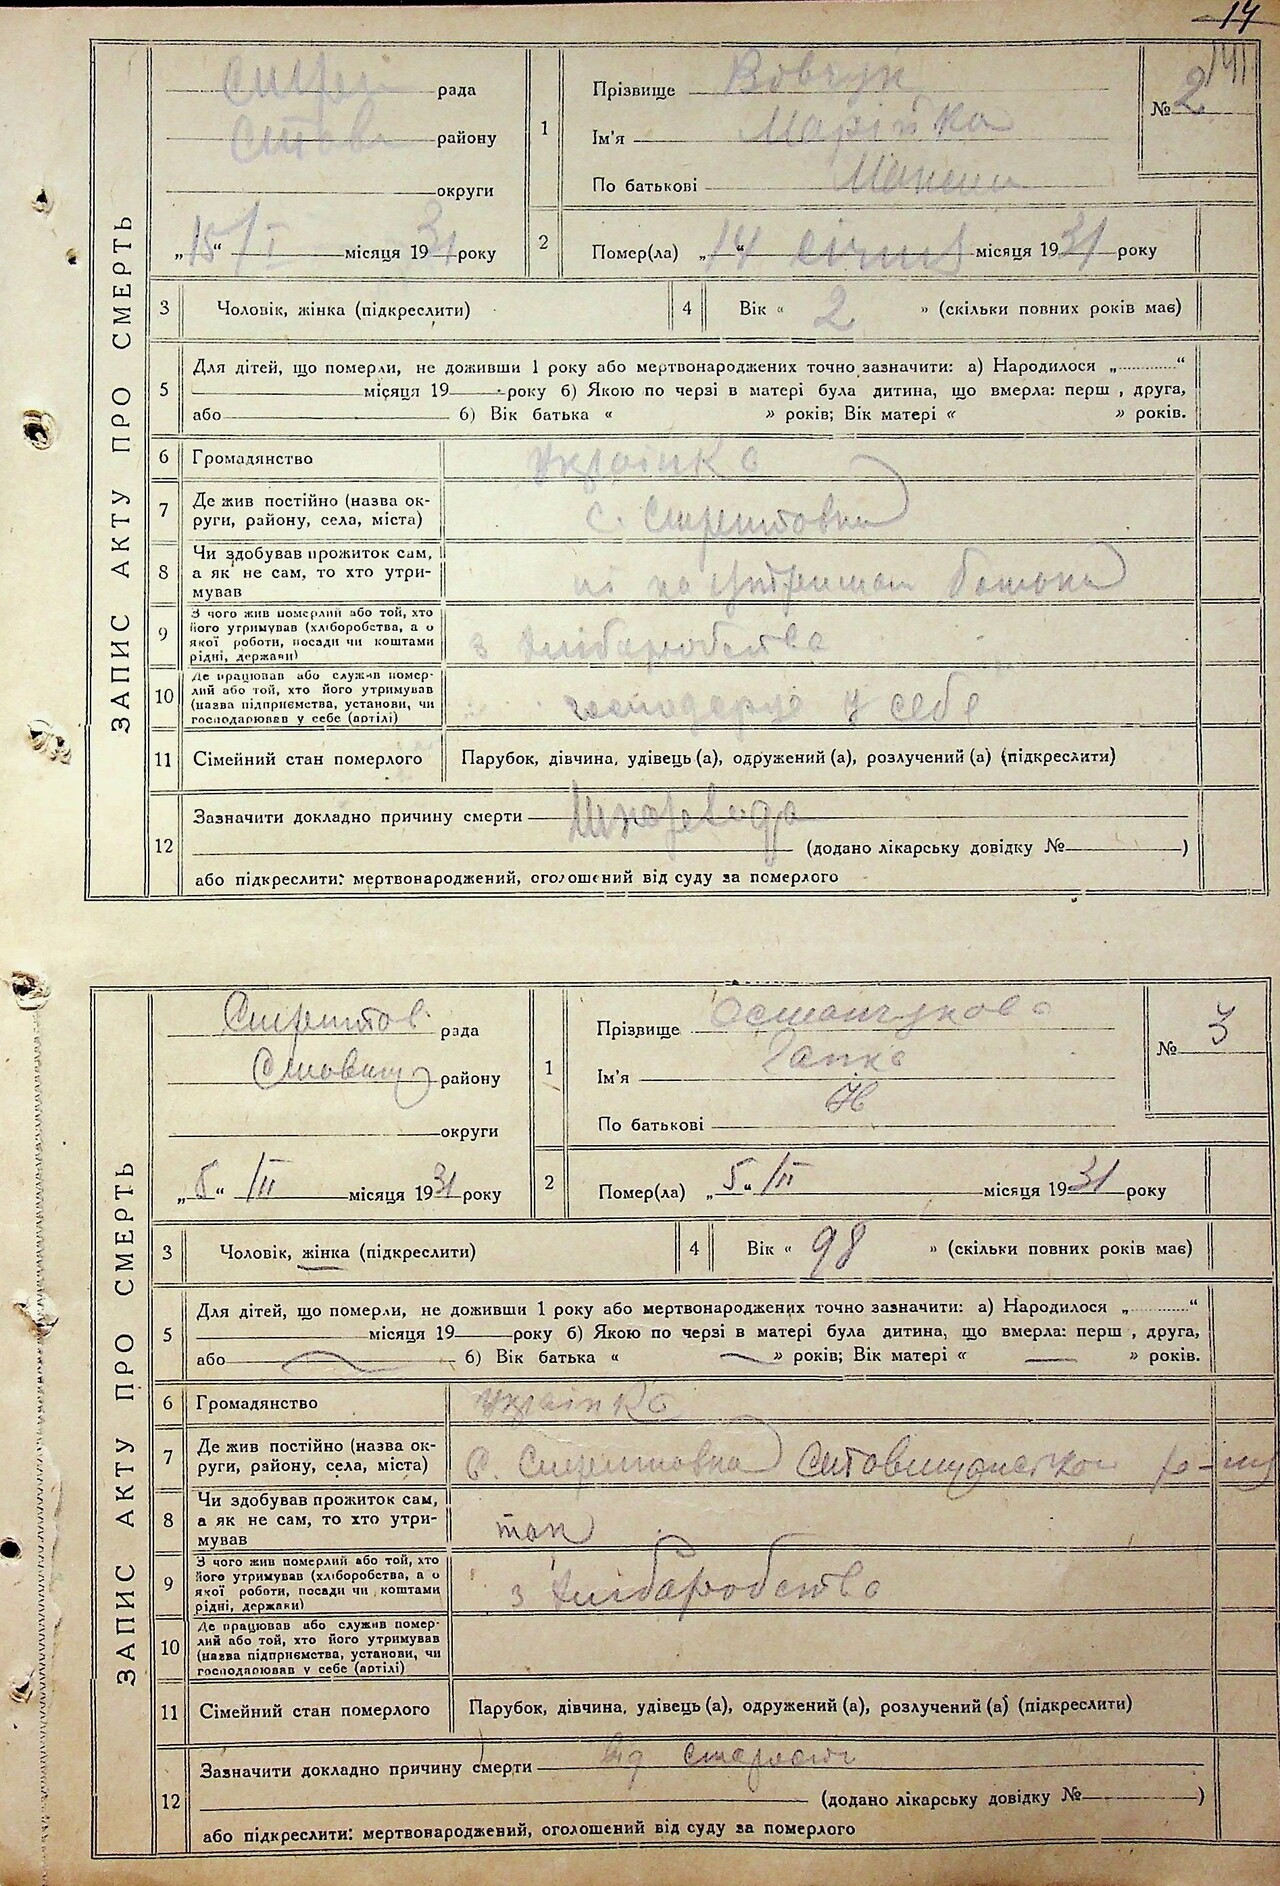 14
141
ЗАПИС АКТУ ПРО СМЕРТЬ
рада
району
округи
„15“ I місяця 1931 року
1
Прізвище Вовчук
Ім'я Марійка
По батькові
№ 2
2
Помер(ла) „14“ січня місяця 1931 року
3 Чоловік, жінка (підкреслити)
4 Вік « 2 » (скільки повних років має)
5
Для дітей, що померли, не доживши 1 року або мертвонароджених точно зазначити: а) Народилося „ “
місяця 19 року б) Якою по черзі в матері була дитина, що вмерла: перш , друга,
або б) Вік батька « » років; Вік матері « » років.
6 Громадянство Українка
7 Де жив постійно (назва ок-
руги, району, села, міста) с.
8 Чи здобував прожиток сам,
а як не сам, то хто утри-
мував ні на
9 З чого жив померлий або той, хто
його утримував (хліборобства, а о
якої роботи, посади чи коштами
рідні, держави) з хліборобства
10 Де працював або служив помер-
лий або той, хто його утримував
(назва підприємства, установи, чи
господарював у себе (артілі) господарює у себе
11 Сімейний стан померлого Парубок, дівчина, удівець (а), одружений (а), розлучений (а) (підкреслити)
12
Зазначити докладно причину смерти
(додано лікарську довідку № )
або підкреслити: мертвонароджений, оголошений від суду за померлого
ЗАПИС АКТУ ПРО СМЕРТЬ
рада
району
округи
„5“ /II місяця 1931 року
1
Прізвище Остапчукова
Ім'я Гапка
По батькові
№ 3
2
Помер(ла) „5“ /II місяця 1931 року
3 Чоловік, жінка (підкреслити)
4 Вік « 98 » (скільки повних років має)
5
Для дітей, що померли, не доживши 1 року або мертвонароджених точно зазначити: а) Народилося „ “
місяця 19 року б) Якою по черзі в матері була дитина, що вмерла: перш , друга,
або б) Вік батька « » років; Вік матері « » років.
6 Громадянство Українка
7 Де жив постійно (назва ок-
руги, району, села, міста) с.
8 Чи здобував прожиток сам,
а як не сам, то хто утри-
мував так
9 З чого жив померлий або той, хто
його утримував (хліборобства, а о
якої роботи, посади чи коштами
рідні, держави) з хліборобства
10 Де працював або служив помер-
лий або той, хто його утримував
(назва підприємства, установи, чи
господарював у себе (артілі)
11 Сімейний стан померлого Парубок, дівчина, удівець (а), одружений (а), розлучений (а) (підкреслити)
12
Зазначити докладно причину смерти від старости
(додано лікарську довідку № )
або підкреслити: мертвонароджений, оголошений від суду за померлого